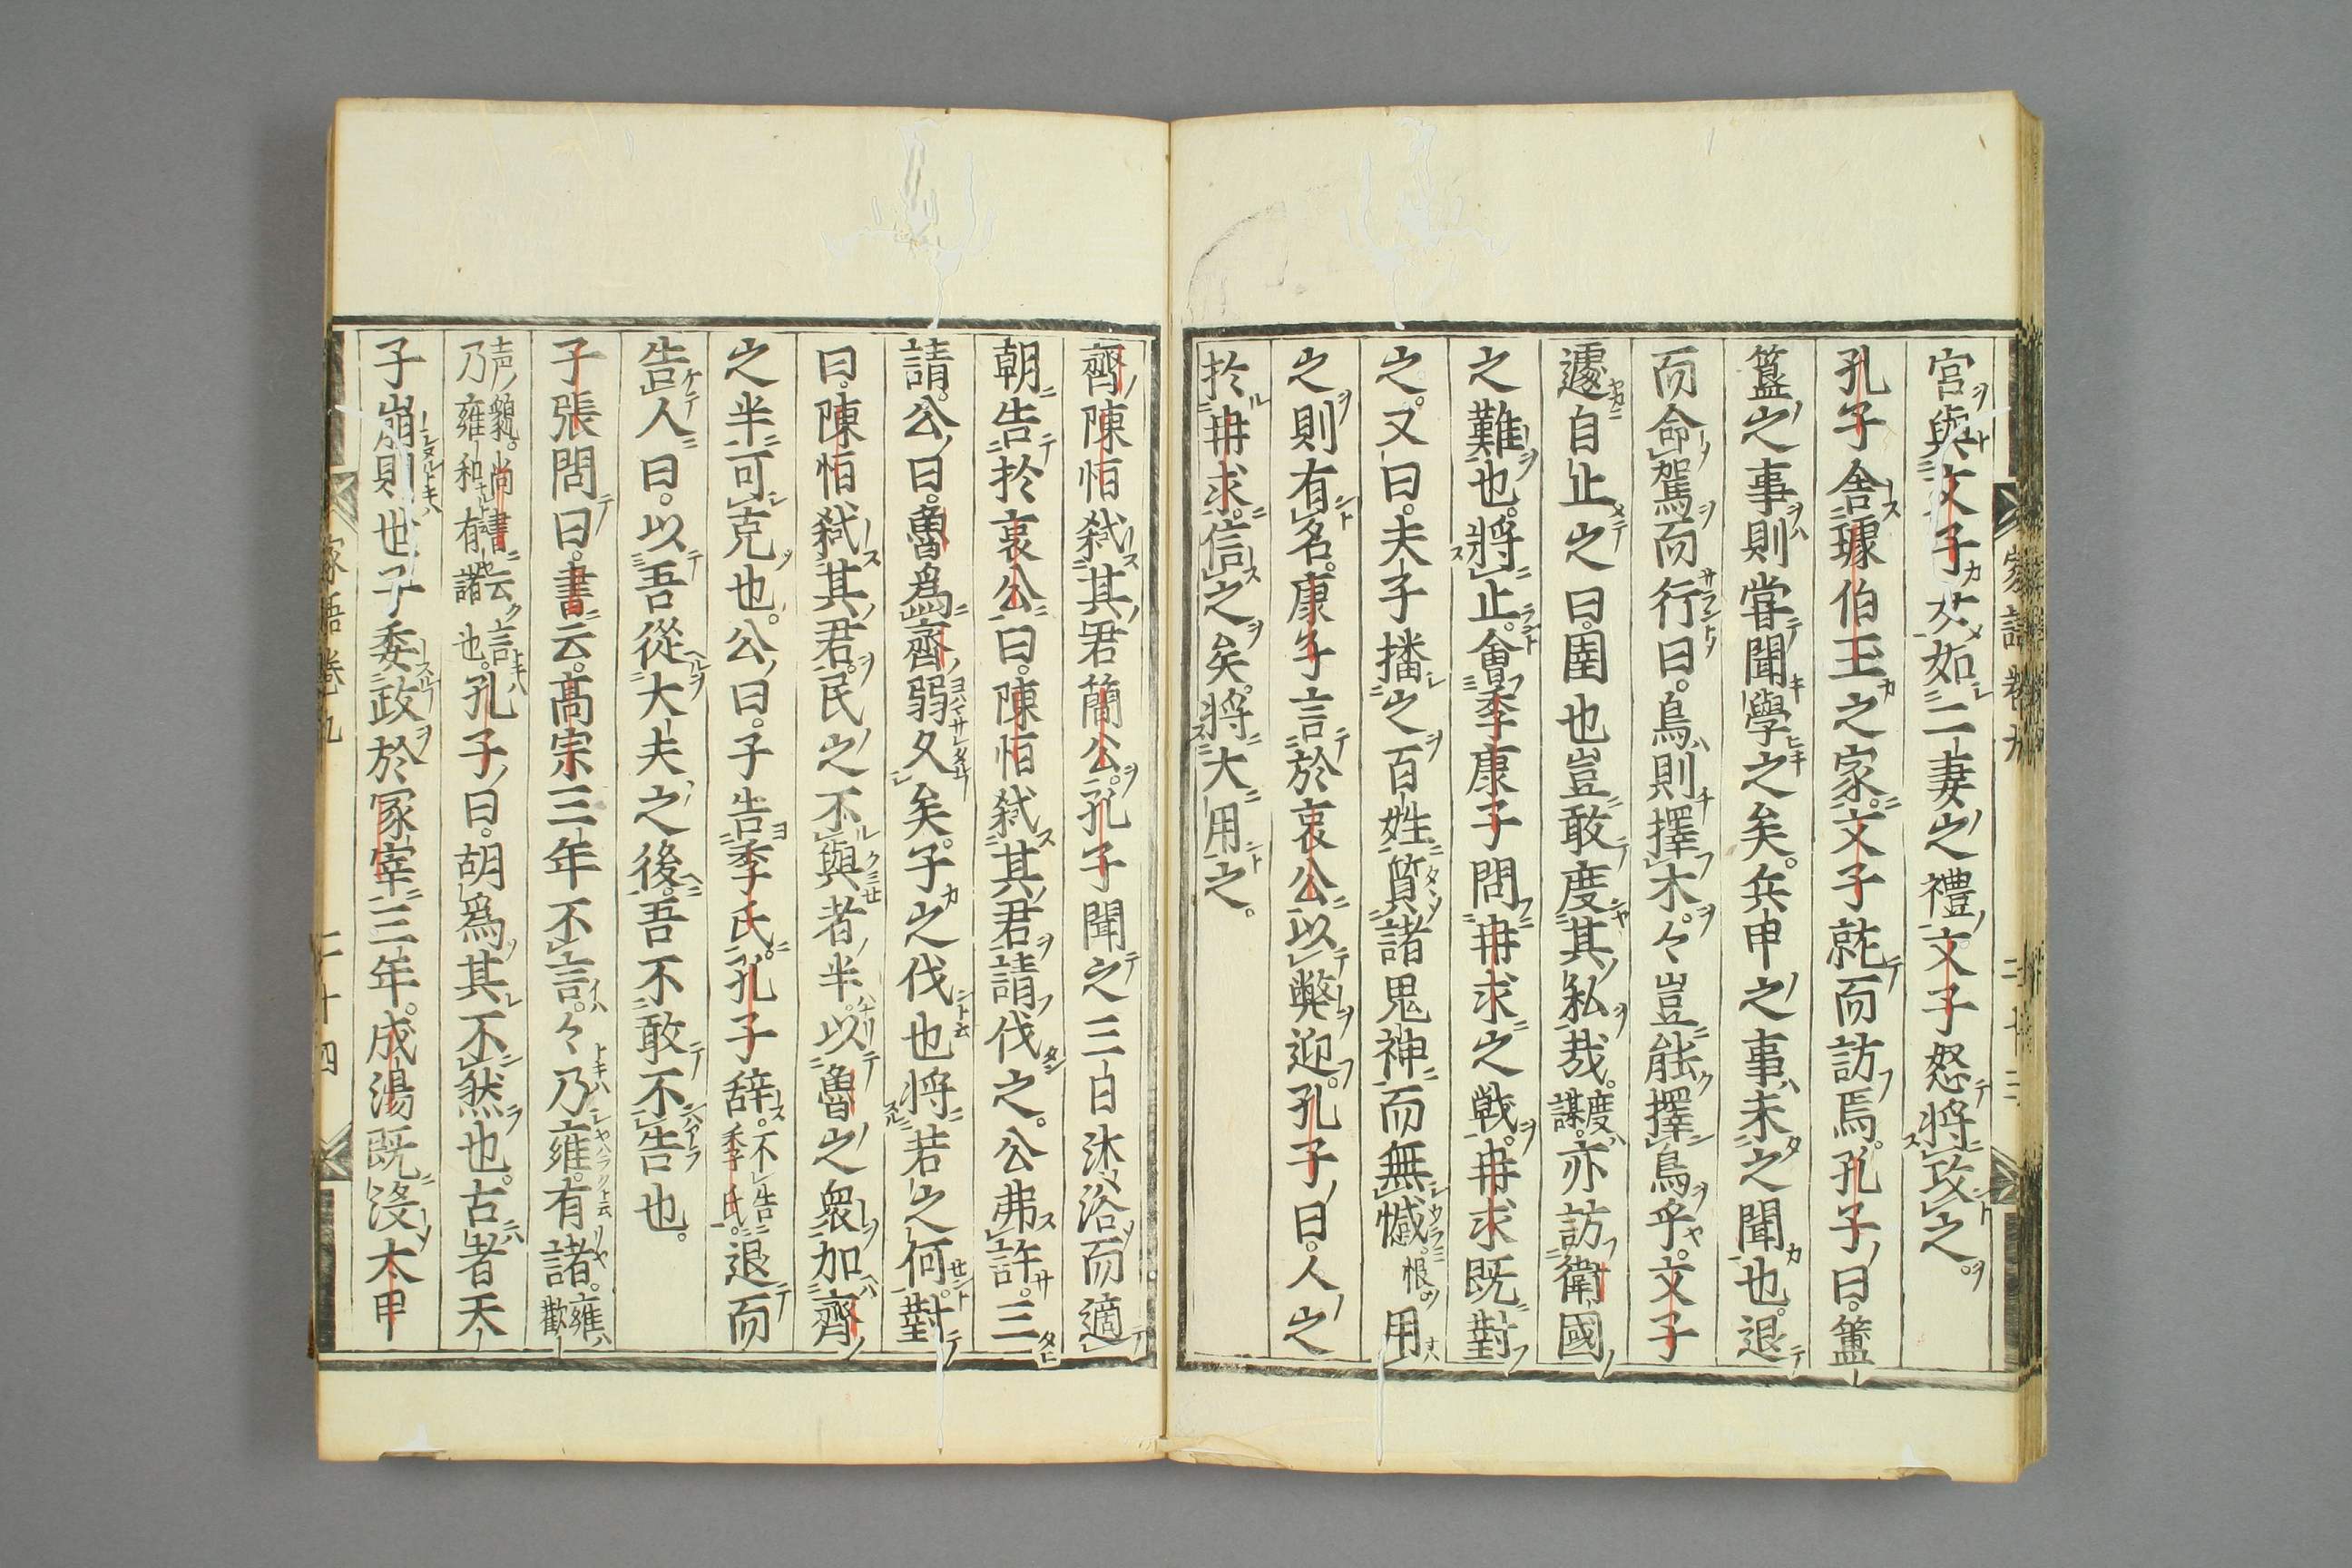 宮與文子女如二妻之禮文子怒將攻之。
孔子舎璩伯玉之家。文子就而訪焉。孔子曰。簠
簋之事則嘗聞學之矣。兵甲之事未之聞也。退
而命駕而行曰。鳥則擇木。々豈能擇鳥乎。文子
遽自止之曰。圉也豈敢度其私哉。度謀。亦訪衛國
之難也。將止。會季康子問冉求之戰。冉求既對
之。又曰。夫子播之百姓質諸鬼神而無憾。恨用
之則有名。康子言於哀公以弊迎。孔子曰。人之
於冉求。信之矣。將大用之。
齊陳恒弑其君簡公。孔子聞之三日沐浴而適
朝告於哀公曰。陳恒弑其君請伐之。公弗許。三
請。公曰。魯爲齊弱久矣。子之伐也將若之何。對
曰。陳恒弑其君。民之不與者半。以魯之衆加齊
之半可克也。公曰。子告季氏。孔子辞。不告季氏。退而
告人曰。以吾從大夫之後。吾不敢不告也。
子張問曰。書云。高宗三年不言。々乃雍。有諸。雍歡
声貌。尚書云言乃雍和有諧也。孔子曰。胡爲其不然也。古者天
子崩則世子委政於冢宰三年。成湯既沒太甲
家語卷九
二十三
家語卷九
二十四